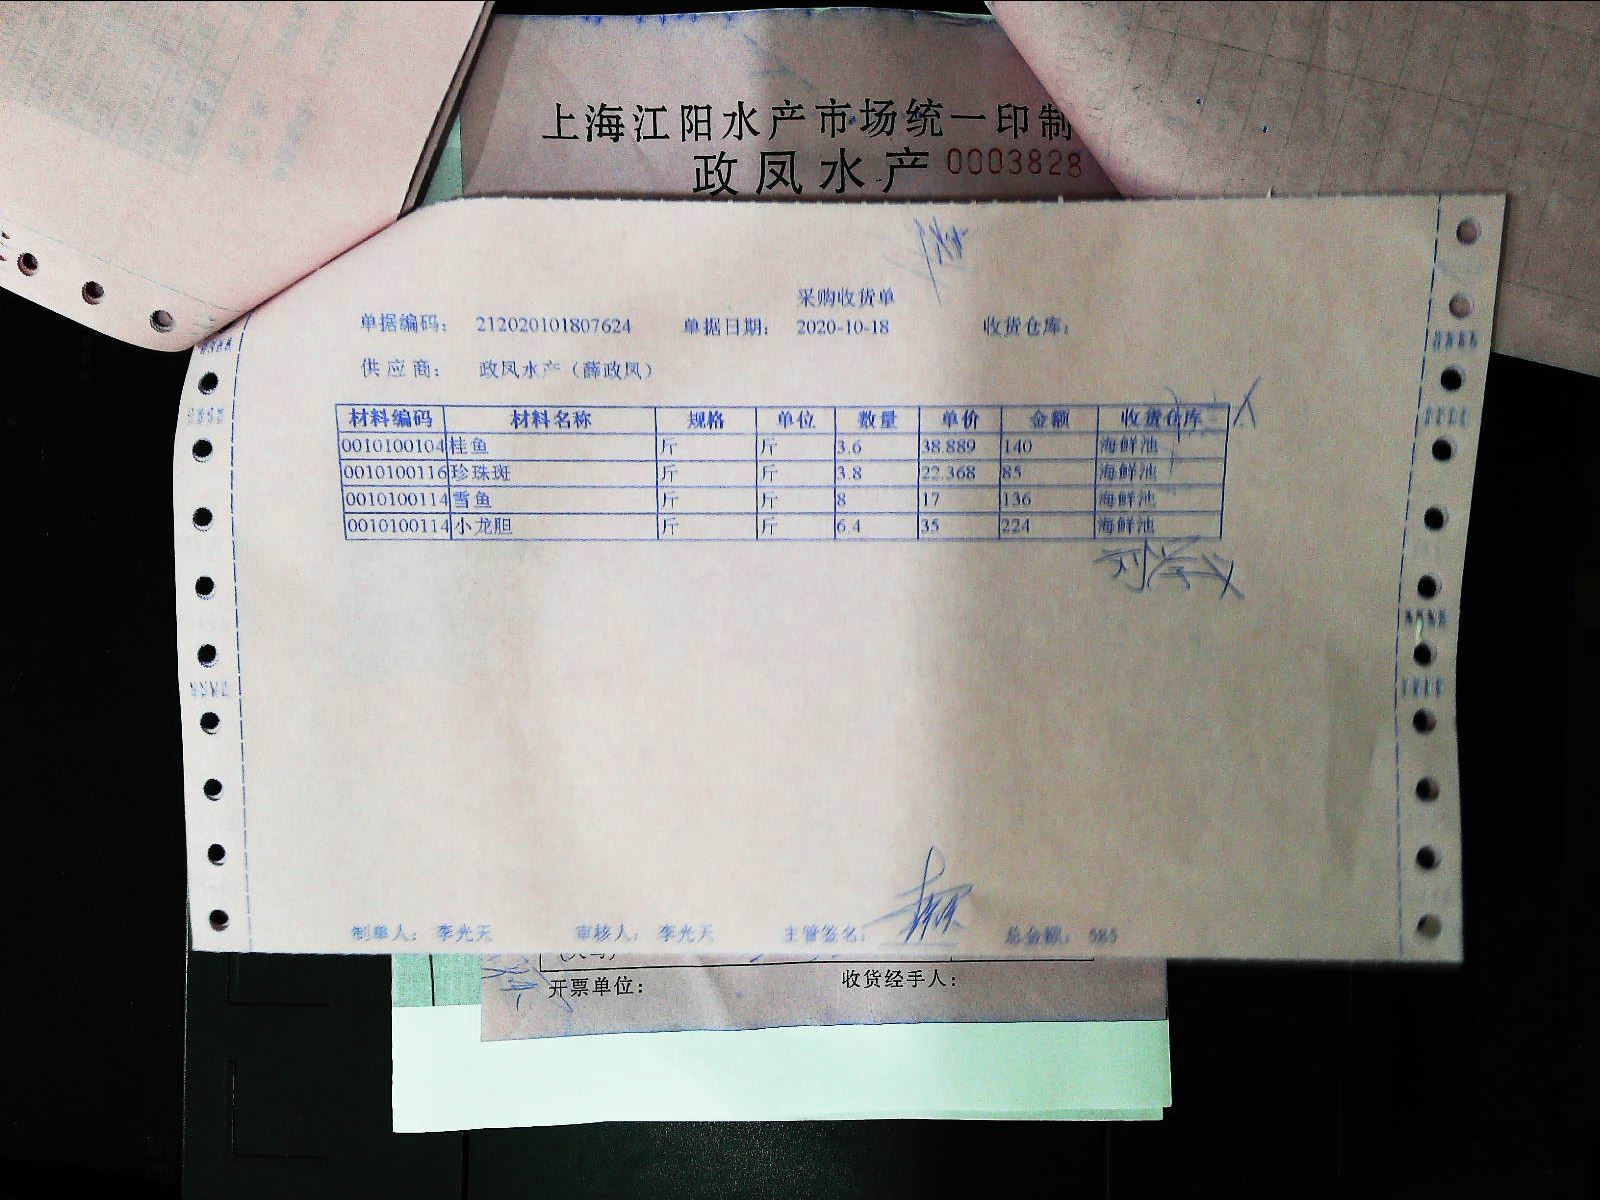 上海江阳水产市场统一印制
政凤水产 0003828
采购收货单
单据编码： 212020101807624 单据日期： 2020-10-18 收货仓库：
供应商： 政凤水产（薛政凤）
材料编码 材料名称 规格 单位 数量 单价 金额 收货仓库
0010100104 桂鱼 斤 斤 3.6 38.889 140 海鲜池
0010100116 珍珠斑 斤 斤 3.8 22.368 85 海鲜池
0010100114 雪鱼 斤 斤 8 17 136 海鲜池
0010100114 小龙胆 斤 斤 6.4 35 224 海鲜池
制单人： 李光天 审核人： 李光天 主管签名： 总金额： 585
开票单位： 收货经手人：